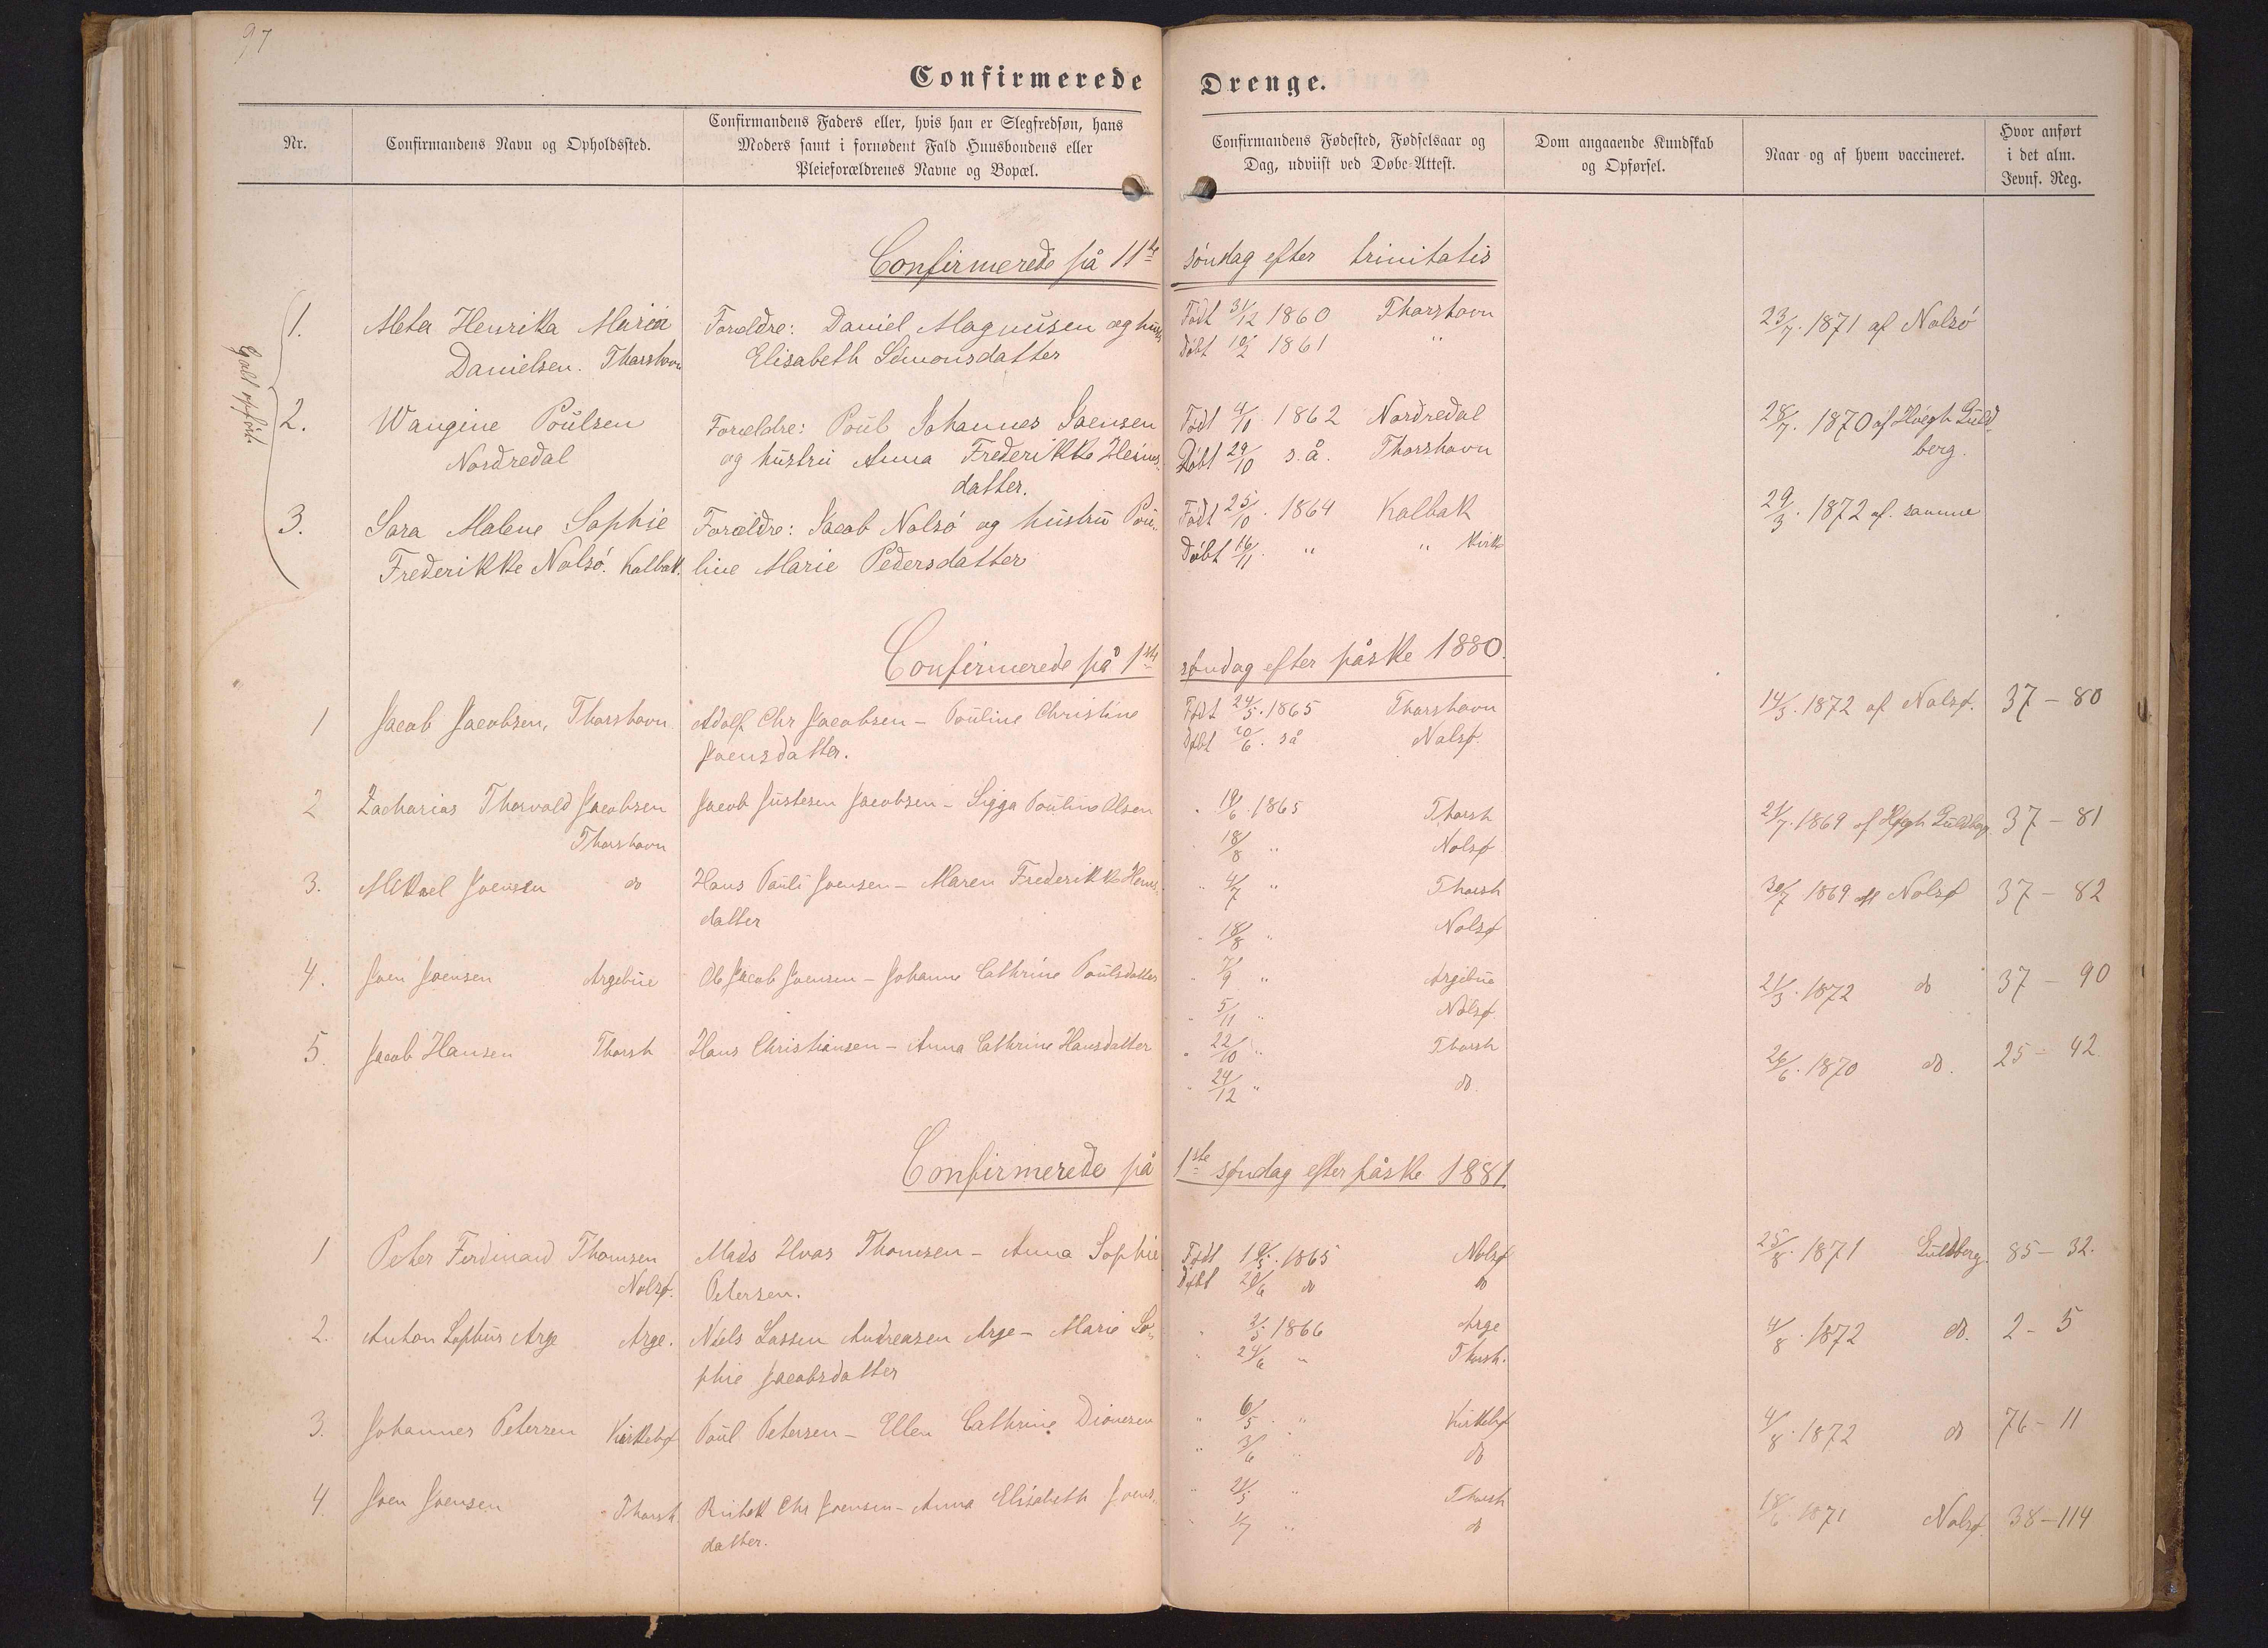 97
Confirmerede Drenge.
Nr.
Confirmandens Navn og Opholdssted.
Confirmandens Faders eller, hvis han er Slegfredsøn, hans
Moders samt i fornødent Fald Huusbondens eller
Pleieforældrenes Navne og Bopæl.
Confirmandens Fødested, Fødselsaar og
Dag, udviist ved Døbe-Attest.
Dom angaaende Kundskab
og Opførsel.
Naar og af hvem vaccineret.
Hvor anført
i det alm.
Jevnf. Reg.
Confirmerede på 11te søndag efter trinitatis
Galt opført
1. Meta Henrika Maria Forældre: Daniel Magnusen og Født 31/12 1860 Thorshavn 23/7. 1871 af Nolsö
Danielsen. Thorshavn Elisabeth Simonsdatter Döbt 10/2 1861 "
2. Wangine Poulsen Forældre: Poul Johannes Joensen Födt 4/10. 1862 Nordredal 28/7. 1870 af Høegh Guld
Nordredal og hustru Anna Frederikke Heines- Döbt 29/10 s.å. Thorshavn berg.
datter.
3. Sara Malene Sophie Forældre: Jacob Nolsö og hustru Pou- Födt 25/10. 1864 Kalbak 29/3. 1872 af samme
Frederikke Nolsö. Kalbak. line Marie Pedersdatter Döbt 16/11. " "
Confirmerede på 1ste søndag efter påske 1880.
1 Jacob Jacobsen, Thorshavn Adolf Chr Jacobsen - Pouline Christine Født 24/5. 1865 Thorshavn 14/3. 1872 af Nolsø. 37 - 80
Joensdatter. Døbt 20/6. så Nolsø.
2 Zacharias Thorvald Jacobsen Jacob Justesen Jacobsen - Sigga Pouline Olsen " 19/6. 1865 Thorsh 21/7. 1869 af Høgh Guldberg 37 - 81
Thorshavn 18/8 " Nolsø
3. Mikael Joensen do Hans Pauli Joensen - Maren Frederikke Heines- " 4/7 " Thorsh 30/7 1869 af Nolsø 37 - 82
datter " 18/8 " Nolsø
4. Joen Joensen Argebue Ole Jacob Joensen - Johanne Cathrine Poulsdatter " 7/9 " Argebue 21/3. 1872 do 37 - 90
" 5/11 " Nolsø
5. Jacob Hansen Thorsh Hans Christiansen - Anna Cathrine Hansdatter " 22/10 " Thorsh 26/6. 1870 do. 25 - 42
" 24/12 " do.
Confirmerede på 1ste søndag efter påske 1881.
1 Peter Ferdinand Thomsen Mads Hvas Thomsen - Anna Sophie Født 1865 Nolsø 25/8. 1871 Guldberg. 85 - 32.
Nolsø. Petersen. Døbt do do
2. Anton Sophus Arge Arge. Niels Lassen Andreasen Arge - Marie So- " 2/5 1866 Arge 4/8. 1872 do. 2 - 5
phie Jacobsdatter " 24/6 " Thorsh.
3. Johannes Petersen Kirkebø Poul Petersen - Ellen Cathrine Dionesen " 6/5. " Kirkebø 4/8. 1872 do 76 - 11
" 3/6 " do
4 Joen Joensen Thorsh. Chr Joensen - Anna Elisabeth Joens- " 21/5 " Thorsh 18/6 1871 Nolsø. 38 - 114
datter. " 1/7 " do